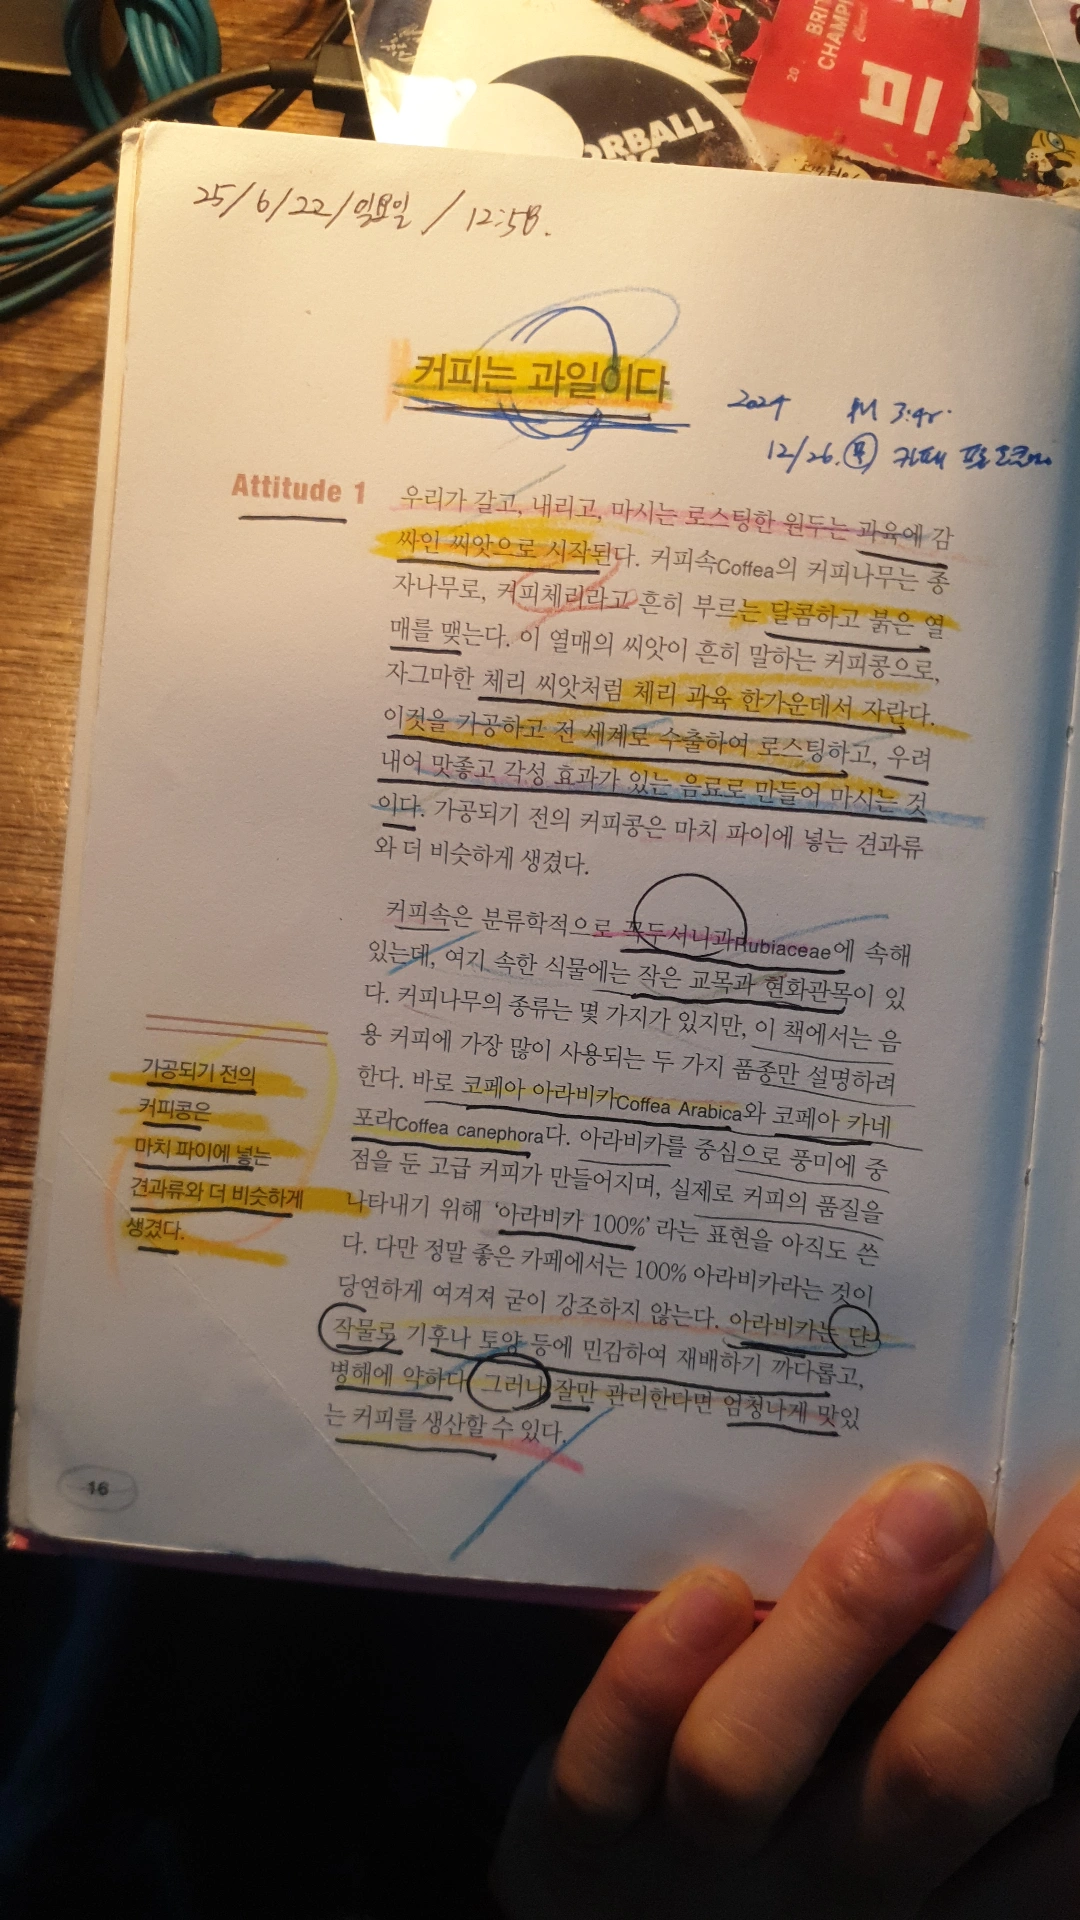 ORBALL
BRIT
CHAMPI
20
미
25/6/22/일요일 / 12:58.
커피는 과일이다
2024 PM 3:45.
12/26. 목 카페
Attitude 1
우리가 갈고, 내리고, 마시는 로스팅한 원두는 과육에 감
싸인 씨앗으로 시작된다. 커피속Coffea의 커피나무는 종
자나무로, 커피체리라고 흔히 부르는 달콤하고 붉은 열
매를 맺는다. 이 열매의 씨앗이 흔히 말하는 커피콩으로,
자그마한 체리 씨앗처럼 체리 과육 한가운데서 자란다.
이것을 가공하고 전 세계로 수출하여 로스팅하고, 우려
내어 맛좋고 각성 효과가 있는 음료로 만들어 마시는 것
이다. 가공되기 전의 커피콩은 마치 파이에 넣는 견과류
와 더 비슷하게 생겼다.
커피속은 분류학적으로 꼭두서니과Rubiaceae에 속해
있는데, 여기 속한 식물에는 작은 교목과 현화관목이 있
다. 커피나무의 종류는 몇 가지가 있지만, 이 책에서는 음
용 커피에 가장 많이 사용되는 두 가지 품종만 설명하려
한다. 바로 코페아 아라비카Coffea Arabica와 코페아 카네
포라Coffea canephora다. 아라비카를 중심으로 풍미에 중
점을 둔 고급 커피가 만들어지며, 실제로 커피의 품질을
나타내기 위해 ‘아라비카 100%’라는 표현을 아직도 쓴
다. 다만 정말 좋은 카페에서는 100% 아라비카라는 것이
당연하게 여겨져 굳이 강조하지 않는다. 아라비카는 단
작물로 기후나 토양 등에 민감하여 재배하기 까다롭고,
병해에 약하다. 그러나 잘만 관리한다면 엄청나게 맛있
는 커피를 생산할 수 있다.
가공되기 전의
커피콩은
마치 파이에 넣는
견과류와 더 비슷하게
생겼다.
16